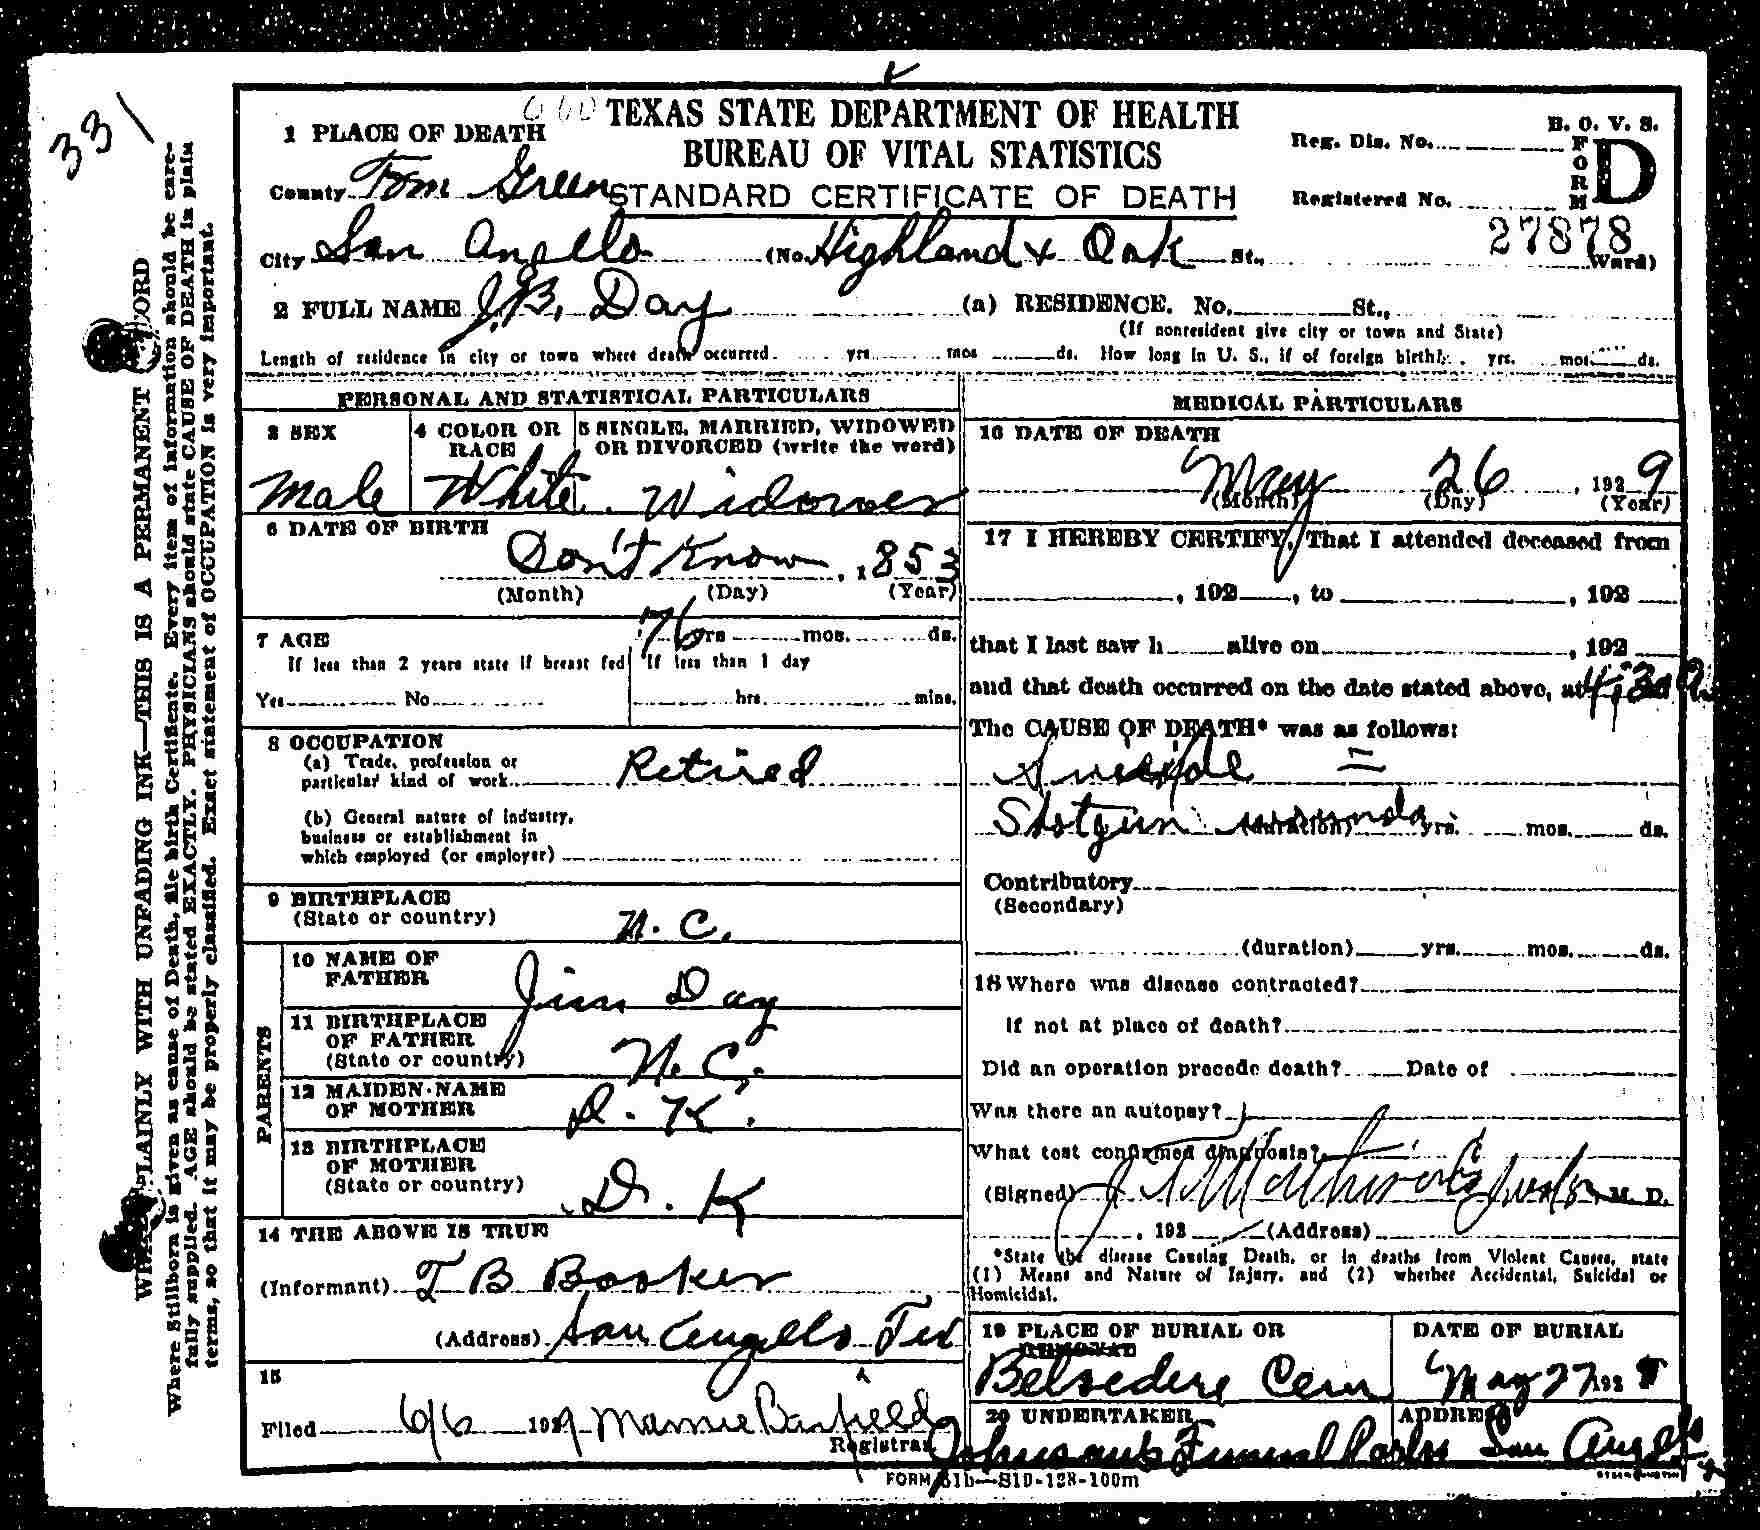 331
TEXAS STATE DEPARTMENT OF HEALTH
BUREAU OF VITAL STATISTICS
STANDARD CERTIFICATE OF DEATH
B. O. V. S.
FORM D
Reg. Dis. No.
Registered No.
27878
1 PLACE OF DEATH
County Tom Green
City San Angelo (No. Highland & Oak St., Ward)
2 FULL NAME J.B. Day (a) RESIDENCE. No. St.,
(If nonresident give city or town and State)
Length of residence in city or town where death occurred. yrs. mos. ds. How long in U. S., if of foreign birth? yrs. mos. ds.
PERSONAL AND STATISTICAL PARTICULARS
3 SEX
Male
4 COLOR OR RACE
White
5 SINGLE, MARRIED, WIDOWED
OR DIVORCED (write the word)
Widower
6 DATE OF BIRTH
Don't Know, 1853
(Month) (Day) (Year)
7 AGE 76 yrs mos. ds.
If less than 2 years state if breast fed
Yes No
If less than 1 day
hrs. mins.
8 OCCUPATION
(a) Trade, profession or
particular kind of work Retired
(b) General nature of industry,
business or establishment in
which employed (or employer)
9 BIRTHPLACE
(State or country) N. C.
PARENTS
10 NAME OF
FATHER Jim Day
11 BIRTHPLACE
OF FATHER
(State or country) N. C.
12 MAIDEN NAME
OF MOTHER D. K.
13 BIRTHPLACE
OF MOTHER
(State or country) D. K
14 THE ABOVE IS TRUE
(Informant) T B Booker
(Address) San Angelo Tex
15
Filed 6/6 1929 Mamie Barfield
Registrar
MEDICAL PARTICULARS
16 DATE OF DEATH
May 26, 1929
(Month) (Day) (Year)
17 I HEREBY CERTIFY, That I attended deceased from
, 192 , to , 192
that I last saw h alive on , 192
and that death occurred on the date stated above, at 4:30
The CAUSE OF DEATH* was as follows:
Suicide =
Shotgun wounds (duration) yrs. mos. ds.
Contributory
(Secondary)
(duration) yrs. mos. ds.
18 Where was disease contracted?
If not at place of death?
Did an operation precede death? Date of
Was there an autopsy?
What test confirmed diagnosis?
(Signed) M. D.
, 192 (Address)
*State the disease Causing Death, or in deaths from Violent Causes, state
(1) Means and Nature of Injury, and (2) whether Accidental, Suicidal or
Homicidal.
19 PLACE OF BURIAL OR
REMOVAL
Belvedere Cem
DATE OF BURIAL
May 27 192
20 UNDERTAKER
Johnson's Funeral Parlor
ADDRESS
San Angelo
FORM 51b—S10-128-100m
PLAINLY WITH UNFADING INK—THIS IS A PERMANENT
Where Stillborn is given as cause of Death, file birth Certificate. Every item of information should be care-
fully supplied. AGE should be stated EXACTLY. PHYSICIANS should state CAUSE OF DEATH in plain
terms, so that it may be properly classified. Exact statement of OCCUPATION is very important.